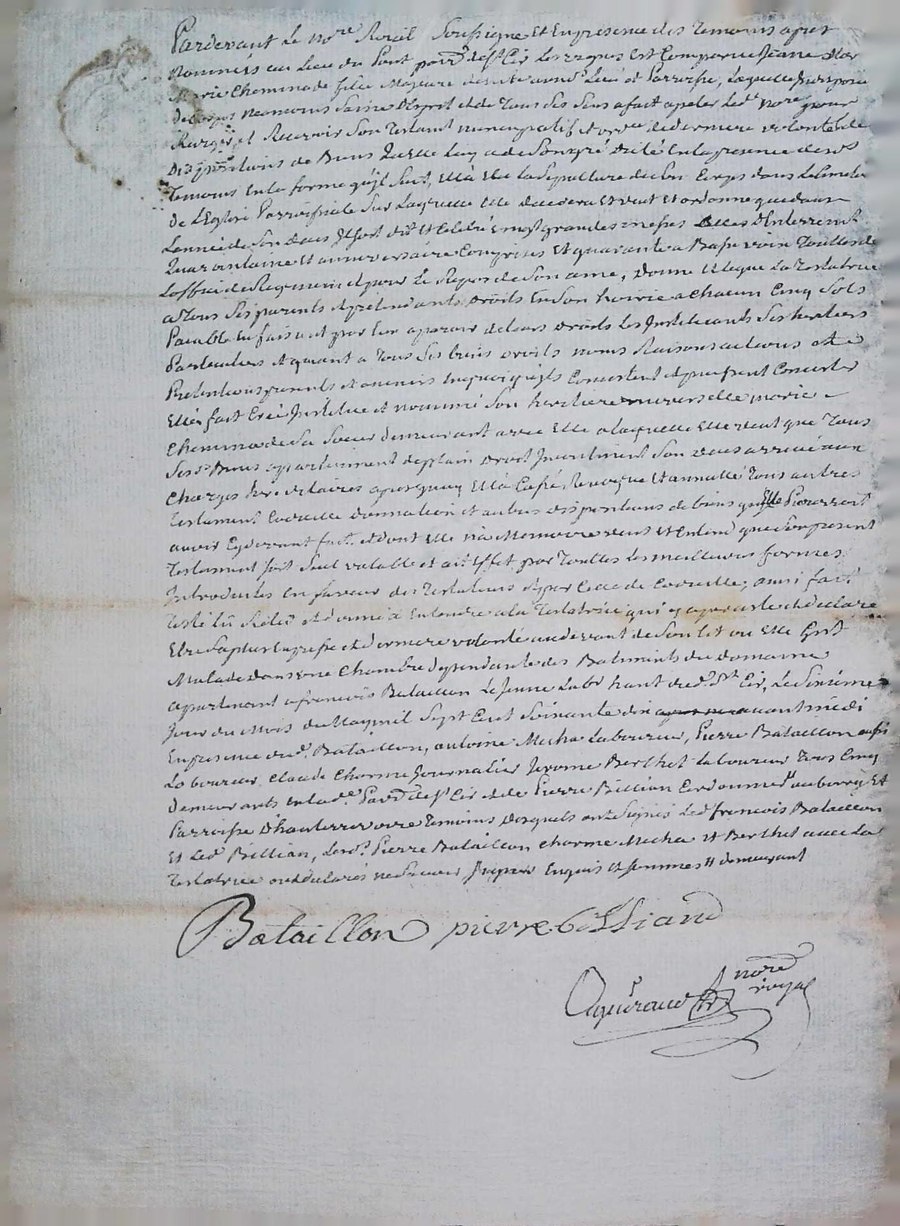 Pardevant Le no.re Roial Soussigné Et En presence des Temoins apres
Nommés au Lieu du Pont par.sse de S.t Cir Les Est Comparue Jeane
Marie Cheminade fille Majeure de Lieu et Parroisse, Laquelle
de Corps neamoins Saine D'esprit et de Tous Ses Sens a fait apeler Led. no.re pour
Rediger et Recevoir Son Testam.t nuncupatif et de derniere volonté
Disp.ons de Biens quelle Luy a de Son gré dicté En la presence des
Temoins En la forme qu'il Suit, Ellà Elu La Sepulture de Son Corps dans Le
De L'Eglise Parroissiale Sur Laquelle Elle decedera Et veut Et ordonne que dans
L'année de Son deces Il Soit dit et Celebré grandes messes Elles D'Enterrem.t
Quarantaine Et anniversaire Comprises Et quarante a Basse voix Touttes de
L'office de Requiem Et pour Le Repos de Son ame, Donne Et legue La Testatrice
a Tous Ses parents Et pretendants Droits En Son hoirie a Chacun Cinq Sols
Paiable En faisant par Eux aparoir de Leurs Droits Les Instituants Ses heritiers
Particuliers Et quant a Tous Ses biens Droits noms Raisons actions Et
Pretentions presents Et avenirs En quoi qu'ils Consistent Et puissent Consister
Elle a fait Créé Institué et nommé Son heritiere universelle marie
Cheminade Sa Soeur demeurant avec Elle a laquelle Elle veut que Tous
Ses d. Biens apartiennent de plain Droit Incontinent Son deces arrivé aux
Charges hereditaires apres quoy Ella Cassé, Revoque Et annulle Tous autres
Testament Codicille donnation et autres dispositions de biens qu'Elle Pourroit
avoir Cydevant fait Et dont Elle n'a Memoire veut Et Entend que Le present
Testament Soit Seul valable et ait Effet par Touttes Les meilleures formes
Introduites En faveur des Testateurs Et par Celle de Codicille; ainsi fait
Testé Lu Relu Et donné a Entendre a La Testatrice qui y a persisté Et declare
Etre Sa plus Expresse Et derniere volonté au devant de Son Lit ou Elle Gist
Malade dans une Chambre dependante des Batiments du domaine
apartenant a francois Bataillon Le Jeune Lab.r hant dud. S.t Cir, Le Sixieme
Jour du Mois de May mil Sept Cent Soixante dix avant midi
En presence dud. Bataillon, antoine Micha Laboureur, Pierre Bataillon aussi
Laboureur, Claude Charme Journalier Jerome Berthet Laboureur Tous Cinq
demeurants En lad.e Par.sse de S.t Cir Et de Pierre Billian Cordonnier au bourg Et
Parroisse D'hauterrivoire Temoins Desquels ont Signés Led. francois Bataillon
Et Led. Billian, Lesd. Pierre Bataillon Charme Micha Et Berthet avec La
Testatrice ont declarés ne Scavoir Signer Enquis Et Sommés
Bataillon pierre Billiand
no.re
royal